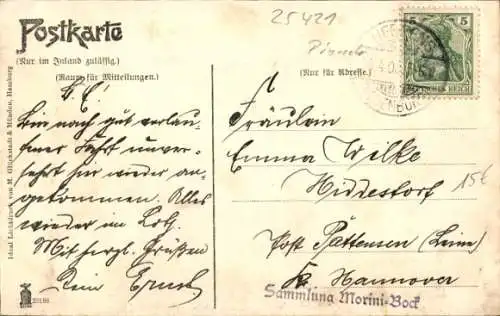 25421
Postkarte
(Nur im Inland zulässig.)
(Raum für Mitteilungen.)
(Nur für Adresse.)
5
DEUTSCHES REICH
L. E.!
Bin nach gut verlau
fener Fahrt unver-
sehrt hier wieder an-
gekommen. Alles
wieder im Lot.
Mit herzl. Grüßen
Dein Ernst
Fräulein
Emma Wilke
Hiddestorf
15€
Post Pattensen (Leine)
Hannover
Sammlung Morini-Bock
Ideal Lichtdruck von M. Glückstadt & Münden, Hamburg